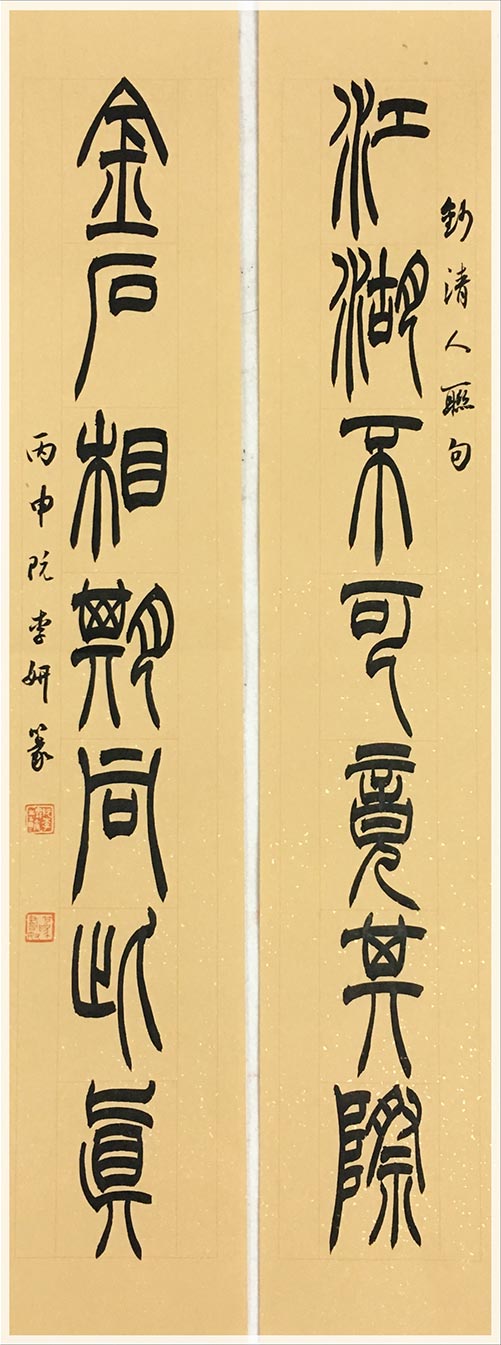 鈔清人聯句
江湖不可竟其際
金石相期同此眞
丙申阮李妍篆